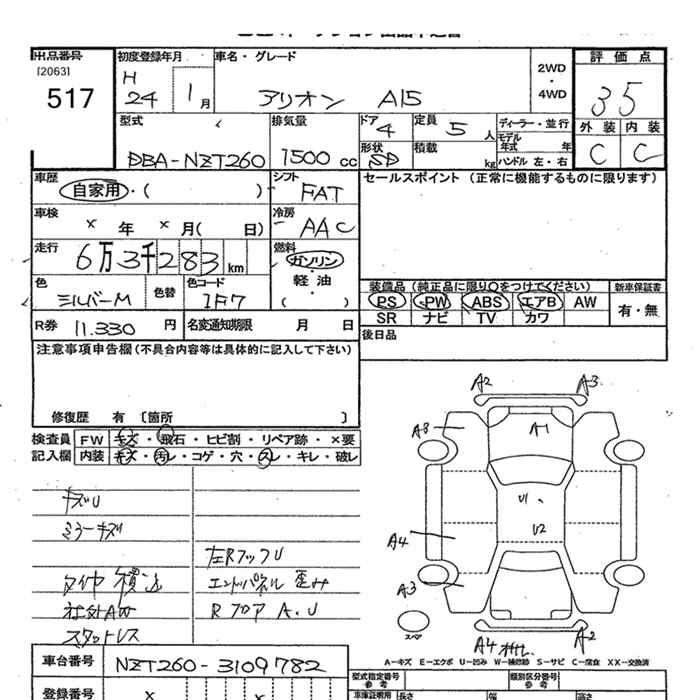 出品番号
[2063]
517
初度登録年月
H
24 1月
車名・グレード
アリオン A15
2WD
・
4WD
評価点
35
外装 内装
C C
型式
DBA-NZT260
排気量
1500 cc
ドア
4
形状
SD
定員
5 人
積載
kg
ディーラー・並行
モデル
年式 年
ハンドル 左・右
車歴
自家用・( )
シフト
FAT
車検
× 年 × 月( 日)
冷房
AAC
走行
6万3千283km
燃料
ガソリン
・
軽油
・
( )
色
シルバーM
色替
色コード
1F7
R券 11.330 円
名変通知期限 月 日
セールスポイント (正常に機能するものに限ります)
装備品 (純正品に限り○をつけてください)
新車保証書
PS PW ABS エアB AW
有・無
SR ナビ TV カワ
後日品
注意事項申告欄(不具合内容等は具体的に記入して下さい)
修復歴 有 〔箇所 〕
検査員
記入欄
FW キズ・飛石・ヒビ割・リペア跡・×要
内装 キズ・汚レ・コゲ・穴・スレ・キレ・破レ
キズU
ミラーキズ
タイヤ 積込
社外AW
スタットレス
左RフックU
エンドパネル 歪み
RフロアA.U
A2 A3
A8
A1
U1
U2
A4
A3
スペア
A4
A2
A-キズ E-エクボ U-凹み W-補修跡 S-サビ C-腐食 XX-交換済
車台番号
NZT260-3109782
登録番号
× ×
型式指定番号
参考
類別区分番号
参考
車庫証明用
長さ
幅
高さ